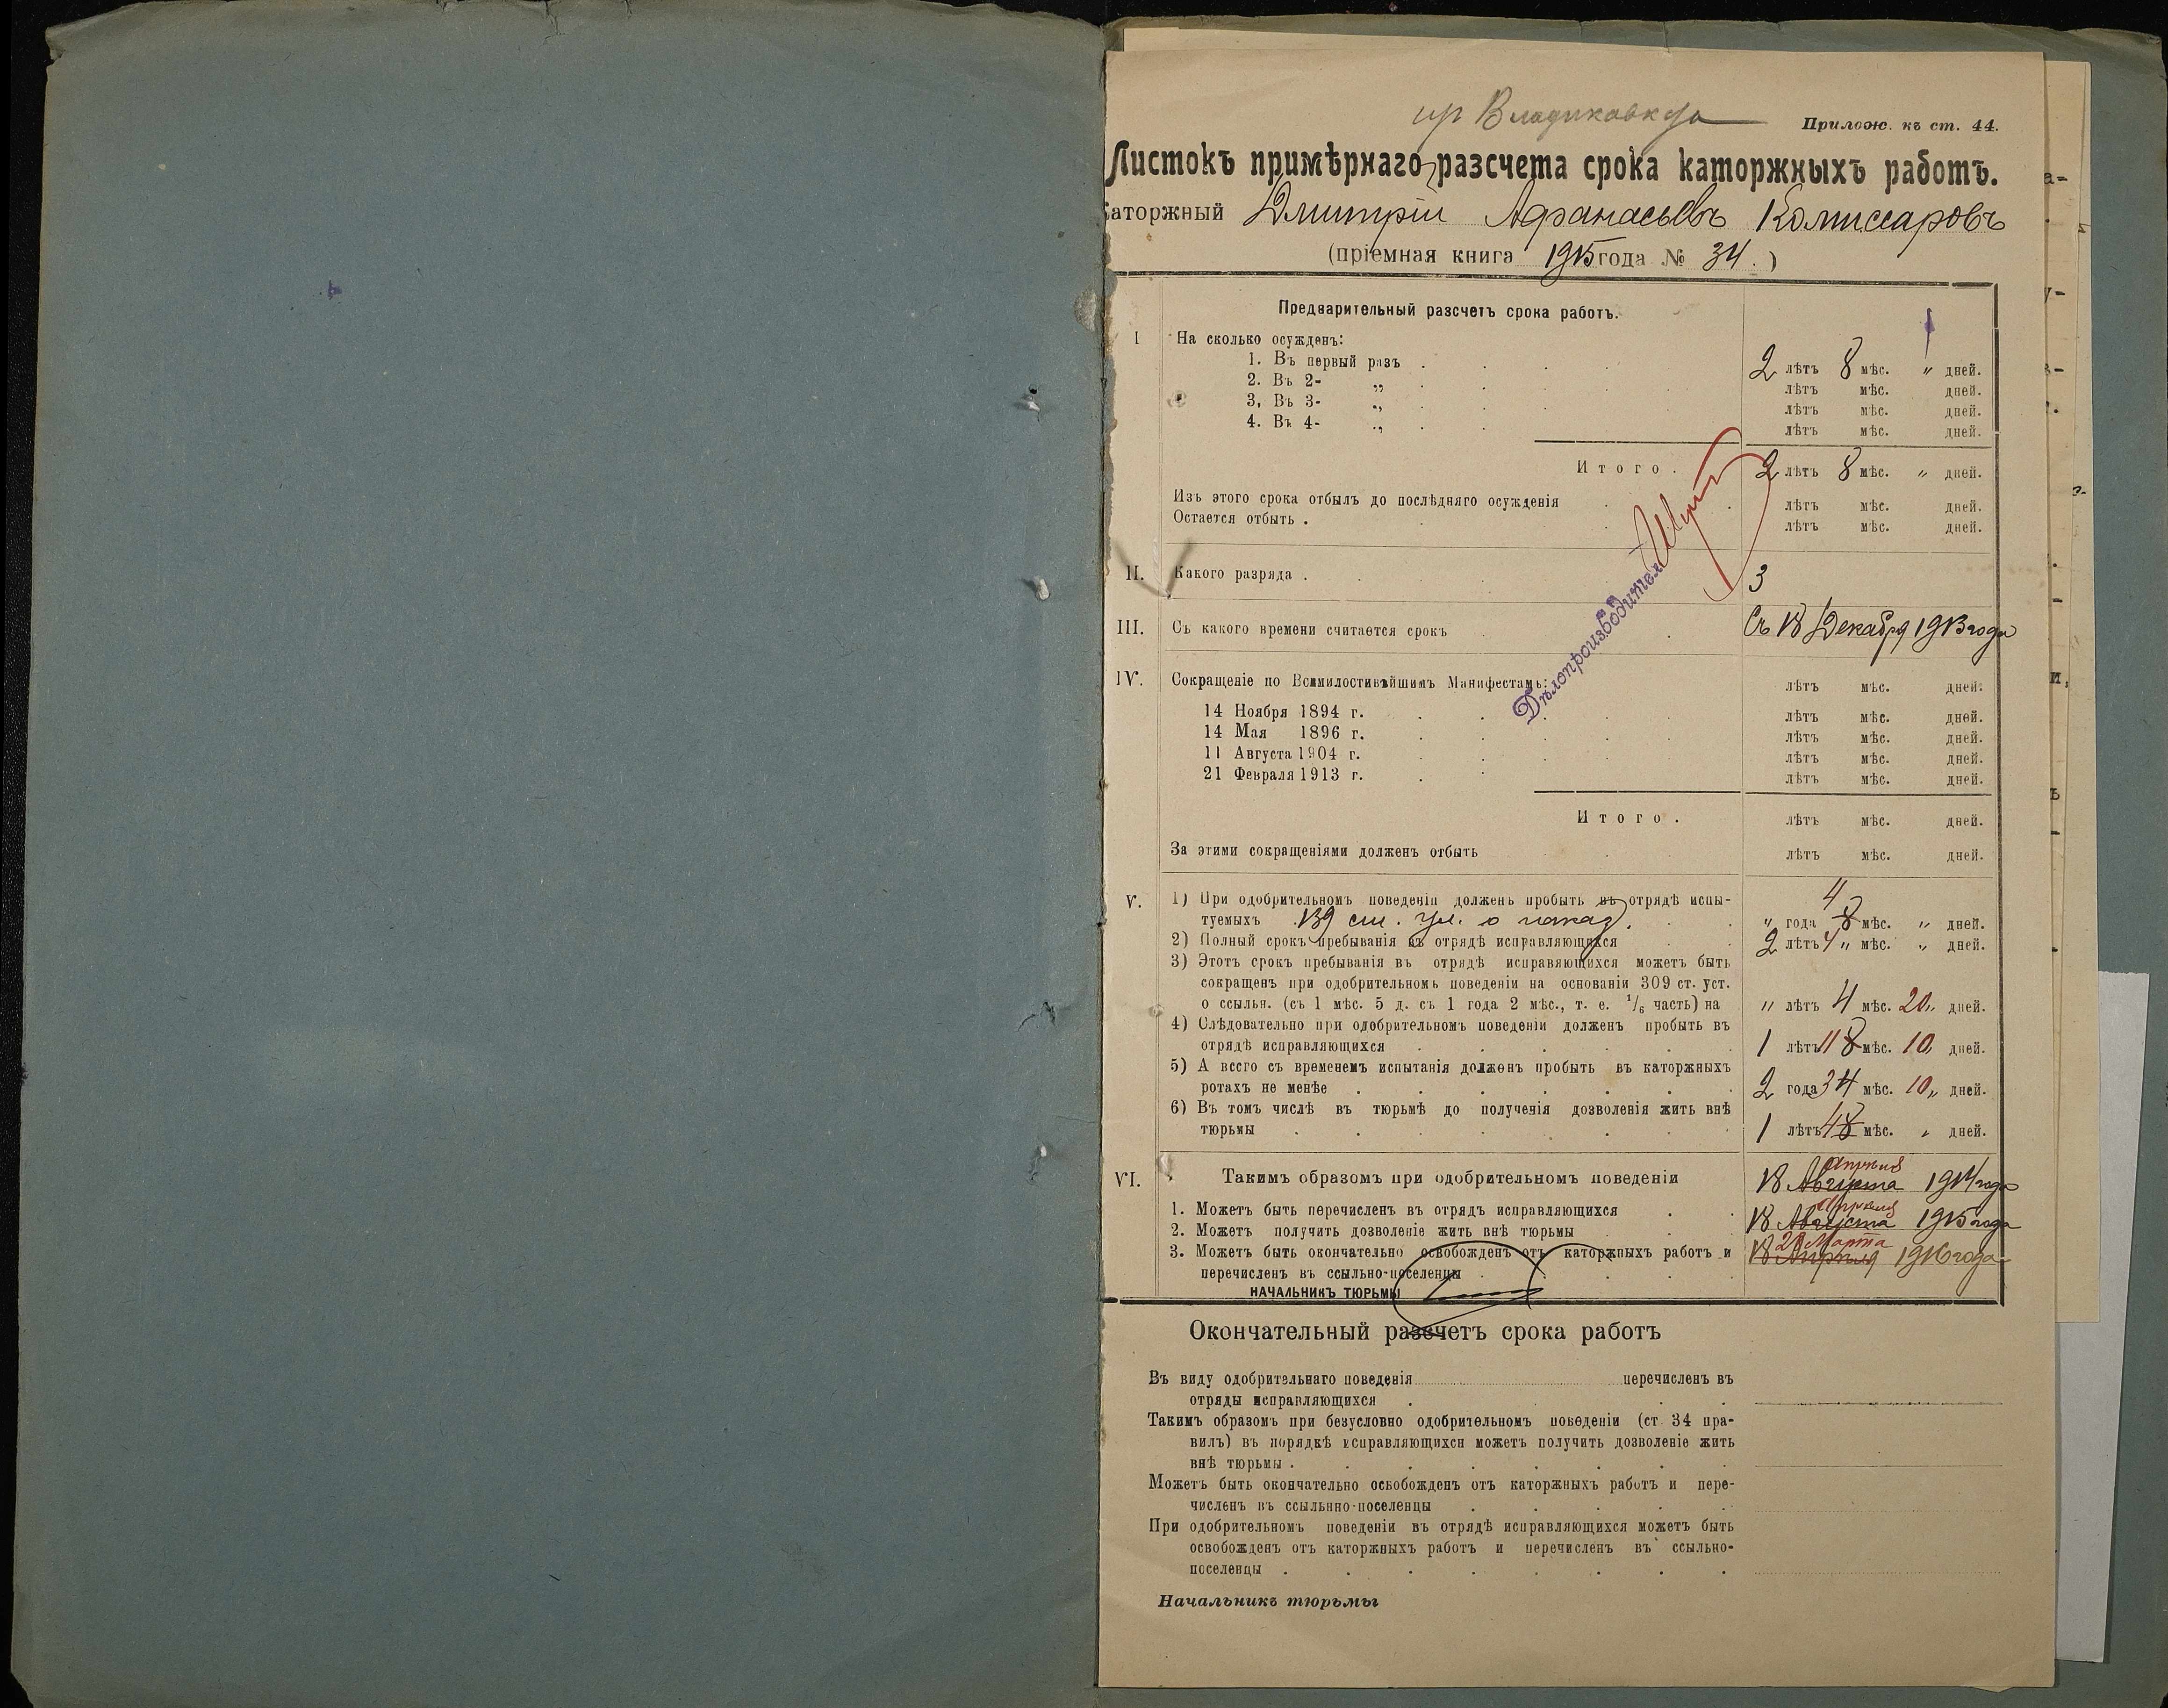 изъ Владикавказа
Прилож. къ ст. 44.
Листокъ примѣрнаго разсчета срока каторжныхъ работъ.
Каторжный Дмитрій Афанасьевъ Комиссаровъ
(пріемная книга 1915 года № 34.)
Предварительный разсчетъ срока работъ.
I На сколько осужденъ:
1. Въ первый разъ . . . . 2 лѣтъ 8 мѣс. „ дней.
2. Въ 2- „ . . . лѣтъ мѣс. дней.
3, Въ 3- „ . . . лѣтъ мѣс. дней.
4. Въ 4- „ . . . лѣтъ мѣс. дней.
Итого. 2 лѣтъ 8 мѣс. „ дней.
Изъ этого срока отбылъ до послѣдняго осужденія лѣтъ мѣс. дней.
Остается отбыть . лѣтъ мѣс. дней.
Дѣлопроизводитель
II. Какого разряда . 3
III. Съ какого времени считается срокъ Съ 18 Декабря 1913 года
IV. Сокращеніе по Всемилостивѣйшимъ Манифестамъ: лѣтъ мѣс. дней.
14 Ноября 1894 г. лѣтъ мѣс. дней.
14 Мая 1896 г. лѣтъ мѣс. дней.
11 Августа 1904 г. лѣтъ мѣс. дней.
21 Февраля 1913 г. лѣтъ мѣс. дней.
Итого. лѣтъ мѣс. дней.
За этими сокращеніями долженъ отбыть лѣтъ мѣс. дней.
V. 1) При одобрительномъ поведеніи долженъ пробыть въ отрядѣ испы-
4
туемыхъ 139 ст. ул. о наказ. „ года 8 мѣс. „ дней.
2) Полный срокъ пребыванія въ отрядѣ исправляющихся 2 лѣтъ 4 „ мѣс. „ дней.
3) Этотъ срокъ пребыванія въ отрядѣ исправяющихся можетъ быть
сокращенъ при одобрительномъ поведеніи на основаніи 309 ст. уст.
о ссыльн. (съ 1 мѣс. 5 д. съ 1 года 2 мѣс., т. е. 1/6 часть) на „ лѣтъ 4 мѣс. 20 „ дней.
4) Слѣдовательно при одобрительномъ поведеніи долженъ пробыть въ
отрядѣ исправляющихся 1 лѣтъ 11 8 мѣс. 10 „ дней.
5) А всего съ временемъ испытанія долженъ пробыть въ каторжныхъ
ротахъ не менѣе 2 года 3 4 мѣс. 10 „ дней.
6) Въ томъ числѣ въ тюрьмѣ до полученія дозволенія жить внѣ
тюрьмы 1 лѣтъ 4 8 мѣс. „ дней.
VI. Такимъ образомъ при одобрительномъ поведеніи
Апрѣля
18 Августа 1914 года
1. Можетъ быть перечисленъ въ отрядъ исправляющихся
Апрѣля
2. Можетъ получить дозволеніе жить внѣ тюрьмы 18 Августа 1915 года
28 Марта
3. Можетъ быть окончательно освобожденъ отъ каторжныхъ работъ и 18 Апрѣля 1916 года
перечисленъ въ ссыльно-поселенцы
НАЧАЛЬНИКЪ ТЮРЬМЫ
Окончательный разсчетъ срока работъ
Въ виду одобрительнаго поведенія перечисленъ въ
отряды исправляющихся
Такимъ образомъ при безусловно одобрительномъ поведеніи (ст. 34 пра-
вилъ) въ порядкѣ исправляющихся можетъ получить дозволеніе жить
внѣ тюрьмы .
Можетъ быть окончательно освобожденъ отъ каторжныхъ работъ и пере-
численъ въ ссыльнно-поселенцы
При одобрительномъ поведеніи въ отрядѣ исправляющихся можетъ быть
освобожденъ отъ каторжныхъ работъ и перечисленъ въ ссыльно-
поселенцы
Начальникъ тюрьмы